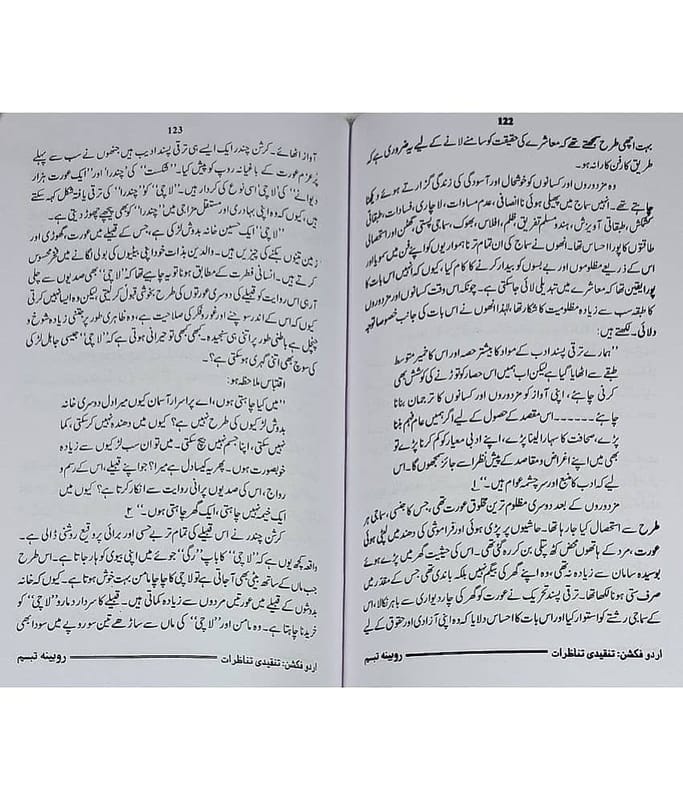 122
بہت اچھی طرح سمجھتے تھے کہ معاشرے کی حقیقت کو سامنے لانے کے لیے یہ ضروری ہے کہ
طریق کار فن کارانہ ہو۔
وہ مزدوروں اور کسانوں کو خوشحال اور آسودگی کی زندگی گزارتے ہوئے دیکھنا
چاہتے تھے۔ انہیں سماج میں پھیلی ہوئی نا انصافی، عدم مساوات، لاچاری، فسادات، طبقاتی
کشمکش، طبقاتی آویزش، ہندو مسلم تفریق، ظلم، افلاس، بھوک، سماجی پستی، گھٹن اور استحصالی
طاقتوں کا پورا احساس تھا۔ انھوں نے سماج کی ان تمام تر ناہمواریوں کو اپنے فن میں سمویا اور
اس کے ذریعے مظلوموں اور بے بسوں کو بیدار کرنے کا کام کیا، کیوں کہ انہیں اس بات کا
پورا یقین تھا کہ معاشرے میں تبدیلی لائی جاسکتی ہے۔ چونکہ اس وقت کسانوں اور مزدوروں
کا طبقہ سب سے زیادہ مظلومیت کا شکار تھا، لہٰذا انھوں نے اس بات کی جانب خصوصاً توجہ
دلائی۔ لکھتے ہیں:
"ہمارے ترقی پسند ادب کے مواد کا بیشتر حصہ اور اس کا خمیر متوسط
طبقے سے اٹھایا گیا ہے لیکن اب ہمیں اس حصار کو توڑنے کی کوشش بھی
کرنی چاہئے، اپنی آواز کو مزدوروں اور کسانوں کا ترجمان بنانا
چاہئے۔۔۔۔۔۔ اس مقصد کے حصول کے لیے اگر ہمیں عام فہم بننا
پڑے، صحافت کا سہارا لینا پڑے، اپنے ادبی معیار کو کم کرنا پڑے تو
بھی میں اپنے اغراض و مقاصد کے پیش نظر اسے جائز سمجھوں گا۔ اس
لیے کہ ادب کا منبع اور سرچشمہ عوام ہیں۔" ۱
مزدوروں کے بعد دوسری مظلوم ترین مخلوق عورت تھی، جس کا جنسی، سماجی ہر
طرح سے استحصال کیا جارہا تھا۔ حاشیوں پر پڑی ہوئی اور فراموشی کی دھند میں لپٹی ہوئی
عورت، مرد کے ہاتھوں محض کٹھ پتلی بن کر رہ گئی تھی۔ اس کی حیثیت گھر میں پڑے ہوئے
بوسیدہ سامان سے زیادہ نہ تھی، وہ اپنے گھر کی بیگم نہیں بلکہ باندی تھی جس کے مقدر میں
صرف ستی ہونا لکھا تھا۔ ترقی پسند تحریک نے عورت کو گھر کی چار دیواری سے باہر نکالا، اس
کے سماجی رشتے کو استوار کیا اور اس بات کا احساس دلایا کہ وہ اپنی آزادی اور حقوق کے لیے
اردو فکشن: تنقیدی تناظرات روبینہ تبسم
123
آواز اٹھائے۔ کرشن چندر ایک ایسے ہی ترقی پسند ادیب ہیں جنھوں نے سب سے پہلے
پُرعزم عورت کے باغیانہ روپ کو پیش کیا۔ "شکست" کی "چندرا" اور "ایک عورت ہزار
دیوانے" کی "لاچی" اسی نوع کی کردار ہیں۔ "لاچی" کو "چندرا" کی ترقی یافتہ شکل کہہ سکتے
ہیں، کیوں کہ وہ اپنی بہادری اور مستقل مزاجی میں "چندرا" کو بھی پیچھے چھوڑ دیتی ہے۔
"لاچی" ایک حسین خانہ بدوش لڑکی ہے، جس کے قبیلے میں عورت، گھوڑی اور
زمین تینوں بکنے کی چیزیں ہیں۔ والدین بذات خود اپنی بیٹیوں کی بولی لگانے میں فخر محسوس
کرتے ہیں۔ انسانی فطرت کے مطابق ہونا تو یہ چاہیے تھا کہ "لاچی" بھی صدیوں سے چلی
آرہی اس روایت کو قبیلے کی دوسری عورتوں کی طرح بخوشی قبول کر لیتی لیکن وہ ایسا نہیں کرتی
کیوں کہ اس کے اندر سوچنے اور غور و فکر کی صلاحیت ہے، وہ ظاہری طور پر جتنی زیادہ شوخ و
چنچل ہے باطنی طور پر اتنی ہی سنجیدہ۔ کبھی کبھی تو حیرانی ہوتی ہے کہ "لاچی" جیسی جاہل لڑکی
کی سوچ بھی اتنی گہری ہوسکتی ہے؟۔
اقتباس ملاحظہ ہو:
"میں کیا چاہتی ہوں، اے پراسرار آسمان کیوں میرا دل دوسری خانہ
بدوش لڑکیوں کی طرح نہیں ہے؟ کیوں میں دھندہ نہیں کر سکتی، کما
نہیں سکتی، اپنا جسم نہیں بیچ سکتی۔ میں تو ان سب لڑکیوں سے زیادہ
خوبصورت ہوں۔ پھر یہ کیسا دل ہے میرا؟ جو اپنے قبیلے، اس کے رسم و
رواج، اس کی صدیوں پرانی روایت سے انکار کرتا ہے؟ کیوں میں
ایک خیمہ نہیں چاہتی، ایک گھر چاہتی ہوں۔" ۲
کرشن چندر نے اس قبیلے کی تمام تر بے حسی اور برائی پر وقیع روشنی ڈالی ہے۔
واقعہ کچھ یوں ہے کہ "لاچی" کا باپ "رگی" جوئے میں اپنی بیوی کو ہار جاتا ہے۔ اس طرح
جب ماں کے ساتھ بیٹی بھی آجاتی ہے تو لاچی کا چاچا مامن بہت خوش ہوتا ہے۔ کیوں کہ خانہ
بدوشوں کے قبیلے میں عورتیں مردوں سے زیادہ کماتی ہیں۔ قبیلے کا سردار دمارو "لاچی" کو
خریدنا چاہتا ہے۔ وہ مامن اور "لاچی" کی ماں سے ساڑھے تین سو روپے میں سودا بھی
اردو فکشن: تنقیدی تناظرات روبینہ تبسم